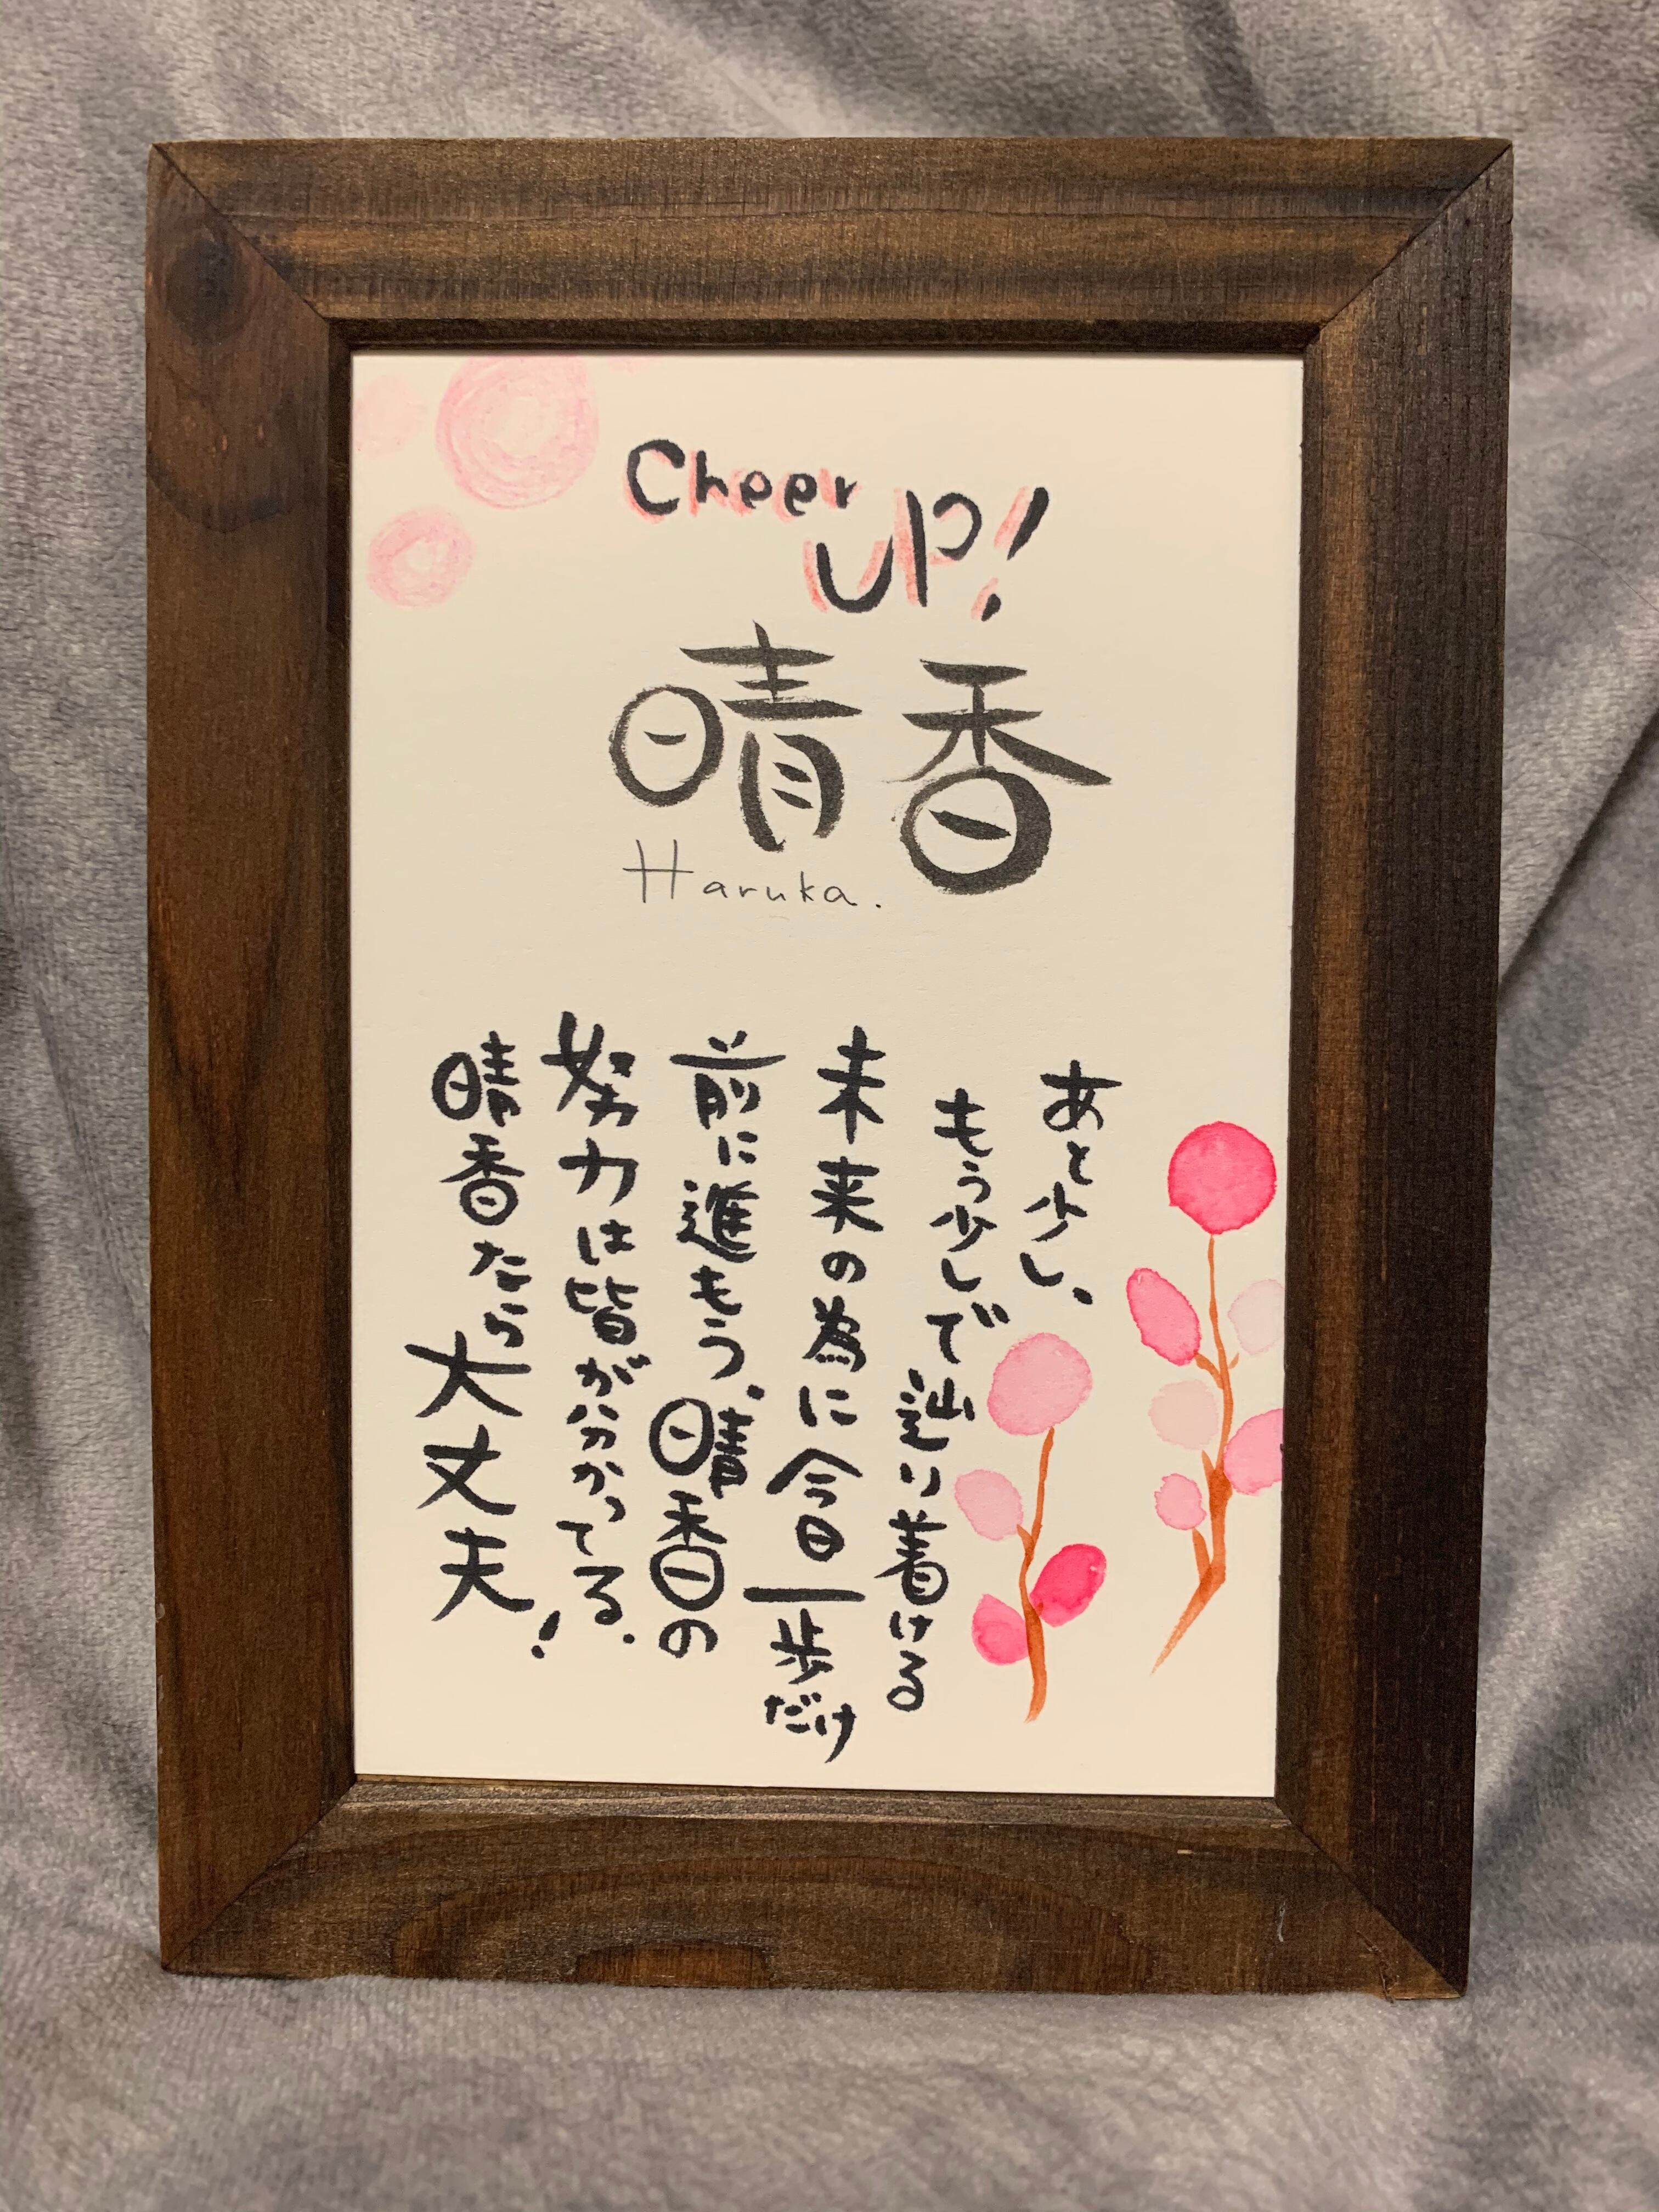 Cheer
UP!
晴香
Haruka.
あと少し、
もう少しで辿り着ける
未来の為に今日一歩だけ
前に進もう、晴香の
努力は皆が分かってる.
晴香なら大丈夫!